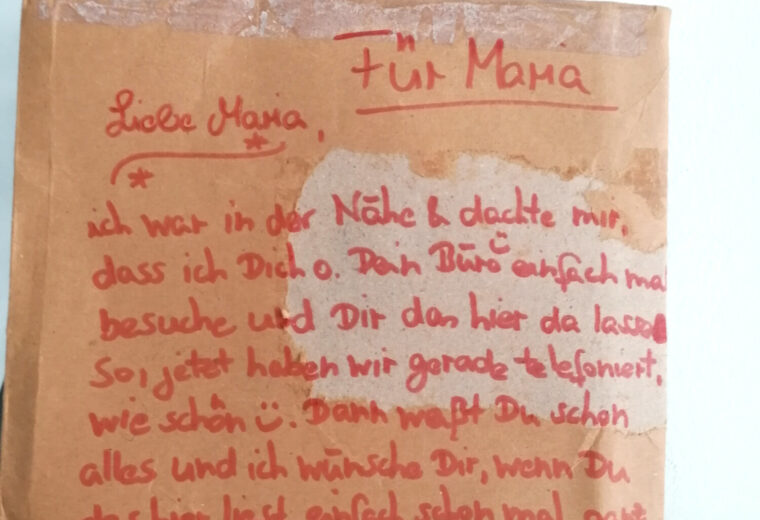 Für Maria
Liebe Maria,
ich war in der Nähe & dachte mir,
dass ich Dich o. Dein Büro einfach ma
besuche und Dir das hier da lassen
So, jetzt haben wir gerade telefoniert,
wie schön ü. Dann weißt Du schon
alles und ich wünsche Dir, wenn Du
das hier liest, einfach schon mal ganz